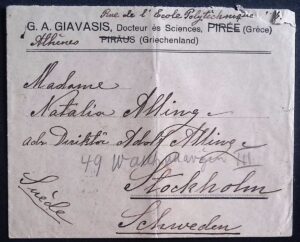 Rue de l'Ecole Polytechnique
G. A. GIAVASIS, Docteur ès Sciences, PIRÉE (Grèce)
Athènes PIRÄUS (Griechenland)
Madame
Natalia Alling
adr Direktör Adolf Alling
49 III
Stockholm
Suède
Schweden